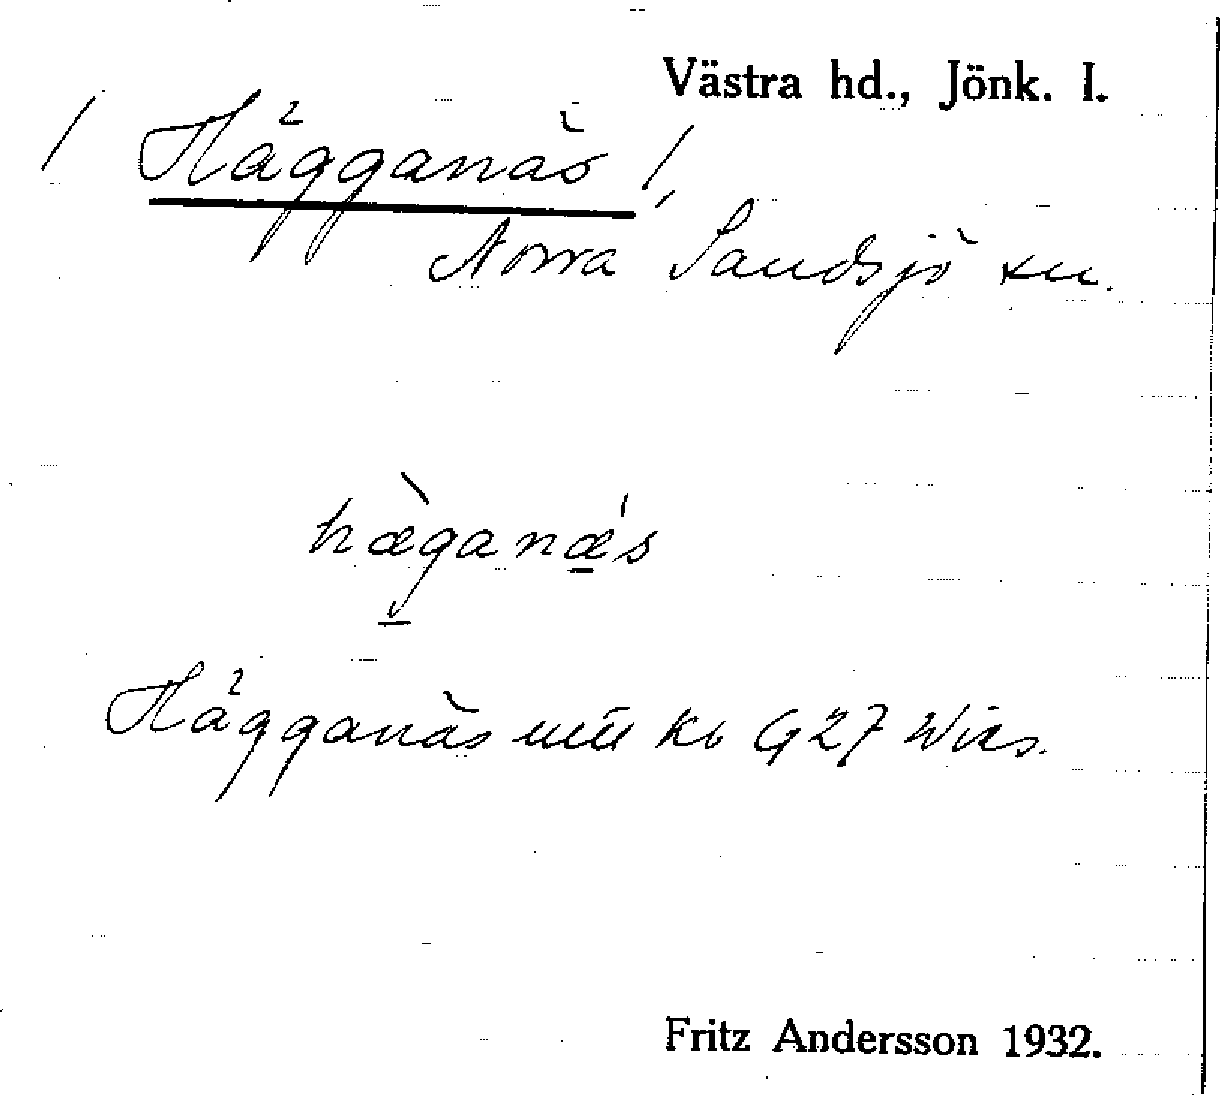 Västra hd., Jönk. l.
/ Hägganäs /,
Norra Sandsjö sn.
hæganæs
Hägganäs Kb G27 Wirs.
Fritz Andersson 1932.